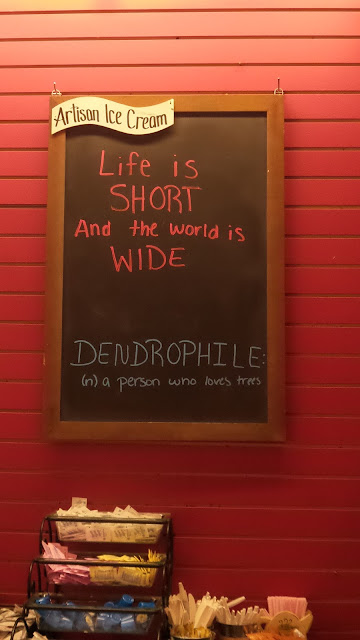 Artisan Ice Cream
Life is
SHORT
And the world is
WIDE
DENDROPHILE:
(n) a person who loves trees